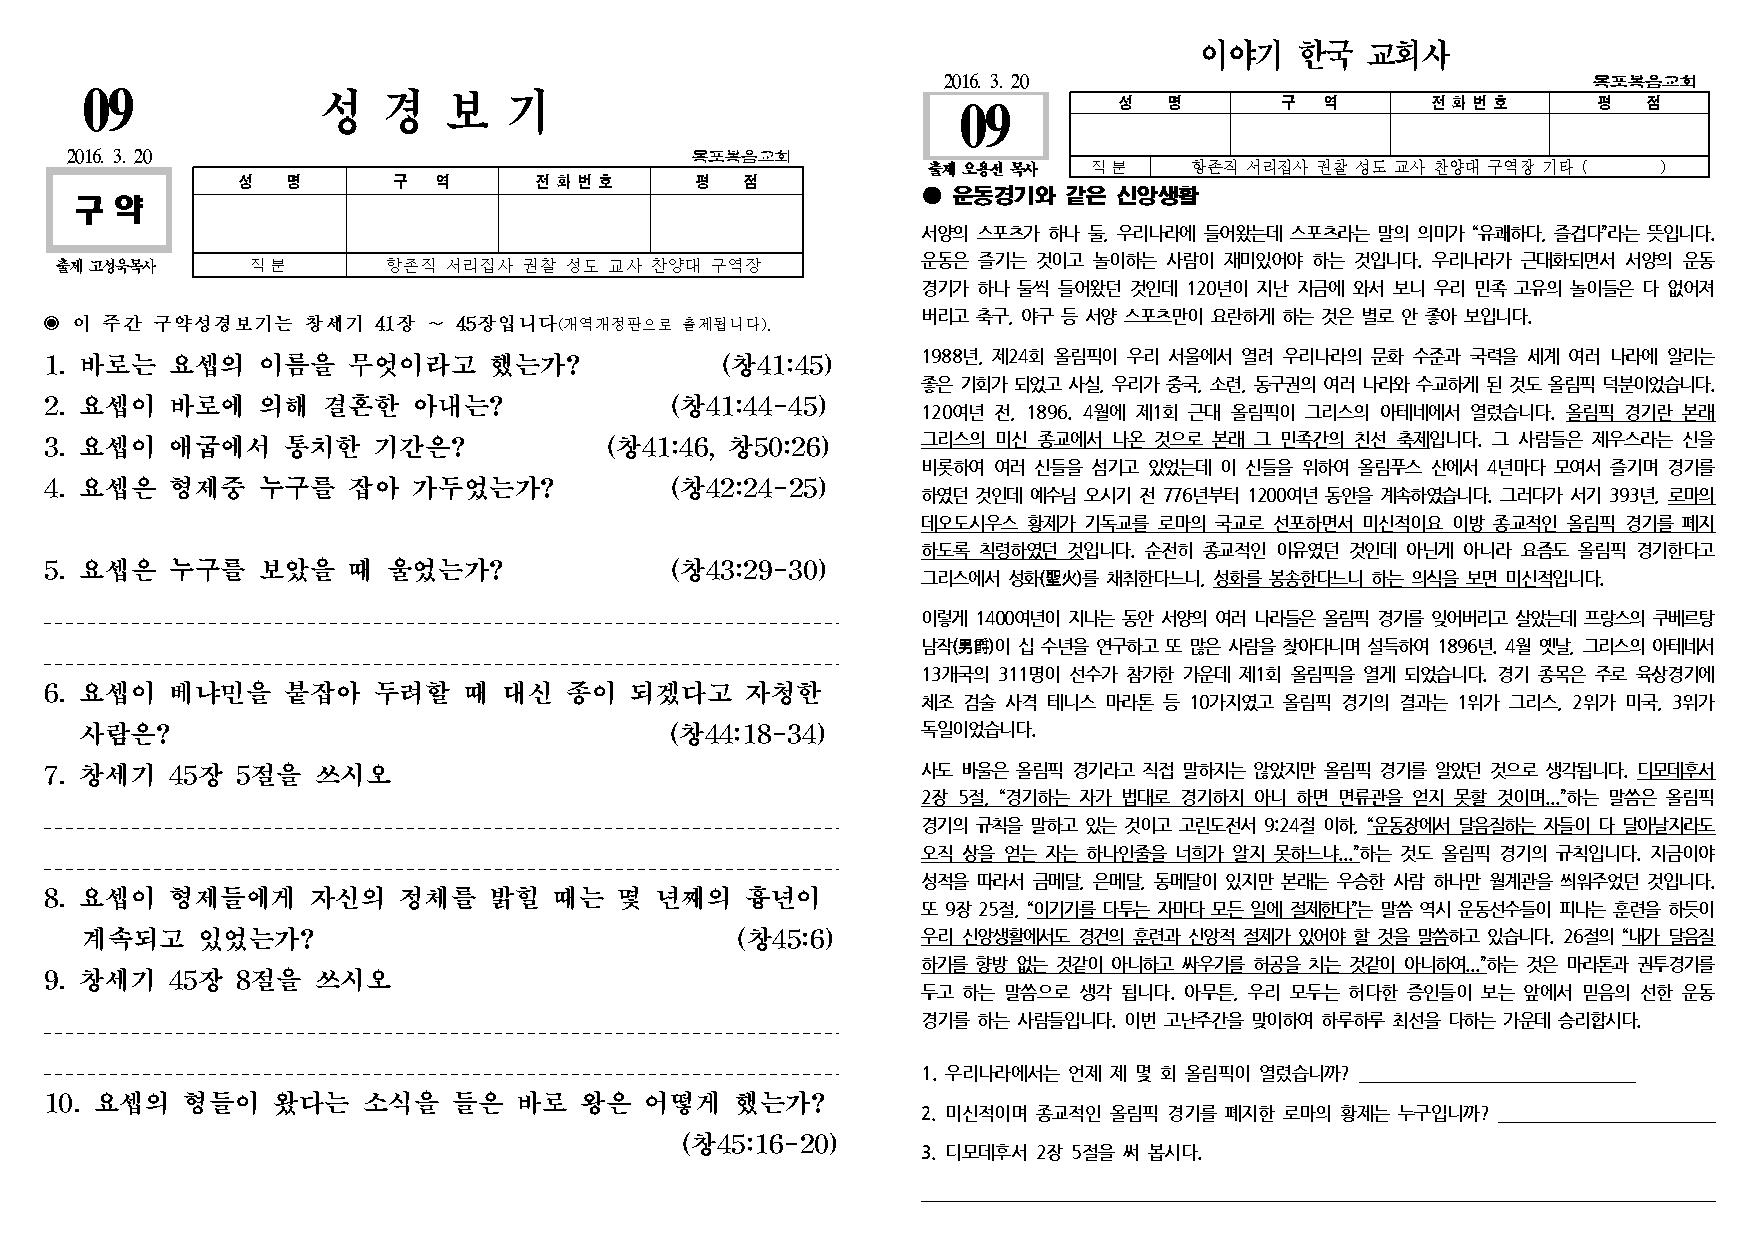 09
성 경 보 기
2016. 3. 20
목포복음교회
구 약
성 명 구 역 전화번호 평 점
출제 고성욱목사
직분 항존직 서리집사 권찰 성도 교사 찬양대 구역장
◉ 이 주간 구약성경보기는 창세기 41장 ~ 45장입니다(개역개정판으로 출제됩니다).
1. 바로는 요셉의 이름을 무엇이라고 했는가? (창41:45)
2. 요셉이 바로에 의해 결혼한 아내는? (창41:44-45)
3. 요셉이 애굽에서 통치한 기간은? (창41:46, 창50:26)
4. 요셉은 형제중 누구를 잡아 가두었는가? (창42:24-25)
5. 요셉은 누구를 보았을 때 울었는가? (창43:29-30)
6. 요셉이 베냐민을 붙잡아 두려할 때 대신 종이 되겠다고 자청한
사람은? (창44:18-34)
7. 창세기 45장 5절을 쓰시오
8. 요셉이 형제들에게 자신의 정체를 밝힐 때는 몇 년째의 흉년이
계속되고 있었는가? (창45:6)
9. 창세기 45장 8절을 쓰시오
10. 요셉의 형들이 왔다는 소식을 들은 바로 왕은 어떻게 했는가?
(창45:16-20)
이야기 한국 교회사
2016. 3. 20
목포복음교회
09
성 명 구 역 전화번호 평 점
출제 오용선 목사
직분 항존직 서리집사 권찰 성도 교사 찬양대 구역장 기타 ( )
● 운동경기와 같은 신앙생활
서양의 스포츠가 하나 둘, 우리나라에 들어왔는데 스포츠라는 말의 의미가 “유쾌하다, 즐겁다”라는 뜻입니다.
운동은 즐기는 것이고 놀이하는 사람이 재미있어야 하는 것입니다. 우리나라가 근대화되면서 서양의 운동
경기가 하나 둘씩 들어왔던 것인데 120년이 지난 지금에 와서 보니 우리 민족 고유의 놀이들은 다 없어져
버리고 축구, 야구 등 서양 스포츠만이 요란하게 하는 것은 별로 안 좋아 보입니다.
1988년, 제24회 올림픽이 우리 서울에서 열려 우리나라의 문화 수준과 국력을 세계 여러 나라에 알리는
좋은 기회가 되었고 사실, 우리가 중국, 소련, 동구권의 여러 나라와 수교하게 된 것도 올림픽 덕분이었습니다.
120여년 전, 1896. 4월에 제1회 근대 올림픽이 그리스의 아테네에서 열렸습니다. 올림픽 경기란 본래
그리스의 미신 종교에서 나온 것으로 본래 그 민족간의 친선 축제입니다. 그 사람들은 제우스라는 신을
비롯하여 여러 신들을 섬기고 있었는데 이 신들을 위하여 올림푸스 산에서 4년마다 모여서 즐기며 경기를
하였던 것인데 예수님 오시기 전 776년부터 1200여년 동안을 계속하였습니다. 그러다가 서기 393년, 로마의
데오도시우스 황제가 기독교를 로마의 국교로 선포하면서 미신적이요 이방 종교적인 올림픽 경기를 폐지
하도록 칙령하였던 것입니다. 순전히 종교적인 이유였던 것인데 아닌게 아니라 요즘도 올림픽 경기한다고
그리스에서 성화(聖火)를 채취한다느니, 성화를 봉송한다느니 하는 의식을 보면 미신적입니다.
이렇게 1400여년이 지나는 동안 서양의 여러 나라들은 올림픽 경기를 잊어버리고 살았는데 프랑스의 쿠베르탕
남작(男爵)이 십 수년을 연구하고 또 많은 사람을 찾아다니며 설득하여 1896년. 4월 옛날, 그리스의 아테네서
13개국의 311명이 선수가 참가한 가운데 제1회 올림픽을 열게 되었습니다. 경기 종목은 주로 육상경기에
체조 검술 사격 테니스 마라톤 등 10가지였고 올림픽 경기의 결과는 1위가 그리스, 2위가 미국, 3위가
독일이었습니다.
사도 바울은 올림픽 경기라고 직접 말하지는 않았지만 올림픽 경기를 알았던 것으로 생각됩니다. 디모데후서
2장 5절, “경기하는 자가 법대로 경기하지 아니 하면 면류관을 얻지 못할 것이며...”하는 말씀은 올림픽
경기의 규칙을 말하고 있는 것이고 고린도전서 9:24절 이하, “운동장에서 달음질하는 자들이 다 달아날지라도
오직 상을 얻는 자는 하나인줄을 너희가 알지 못하느냐...”하는 것도 올림픽 경기의 규칙입니다. 지금이야
성적을 따라서 금메달, 은메달, 동메달이 있지만 본래는 우승한 사람 하나만 월계관을 씌워주었던 것입니다.
또 9장 25절, “이기기를 다투는 자마다 모든 일에 절제한다”는 말씀 역시 운동선수들이 피나는 훈련을 하듯이
우리 신앙생활에서도 경건의 훈련과 신앙적 절제가 있어야 할 것을 말씀하고 있습니다. 26절의 “내가 달음질
하기를 향방 없는 것같이 아니하고 싸우기를 허공을 치는 것같이 아니하여...”하는 것은 마라톤과 권투경기를
두고 하는 말씀으로 생각 됩니다. 아무튼, 우리 모두는 허다한 증인들이 보는 앞에서 믿음의 선한 운동
경기를 하는 사람들입니다. 이번 고난주간을 맞이하여 하루하루 최선을 다하는 가운데 승리합시다.
1. 우리나라에서는 언제 제 몇 회 올림픽이 열렸습니까?
2. 미신적이며 종교적인 올림픽 경기를 폐지한 로마의 황제는 누구입니까?
3. 디모데후서 2장 5절을 써 봅시다.